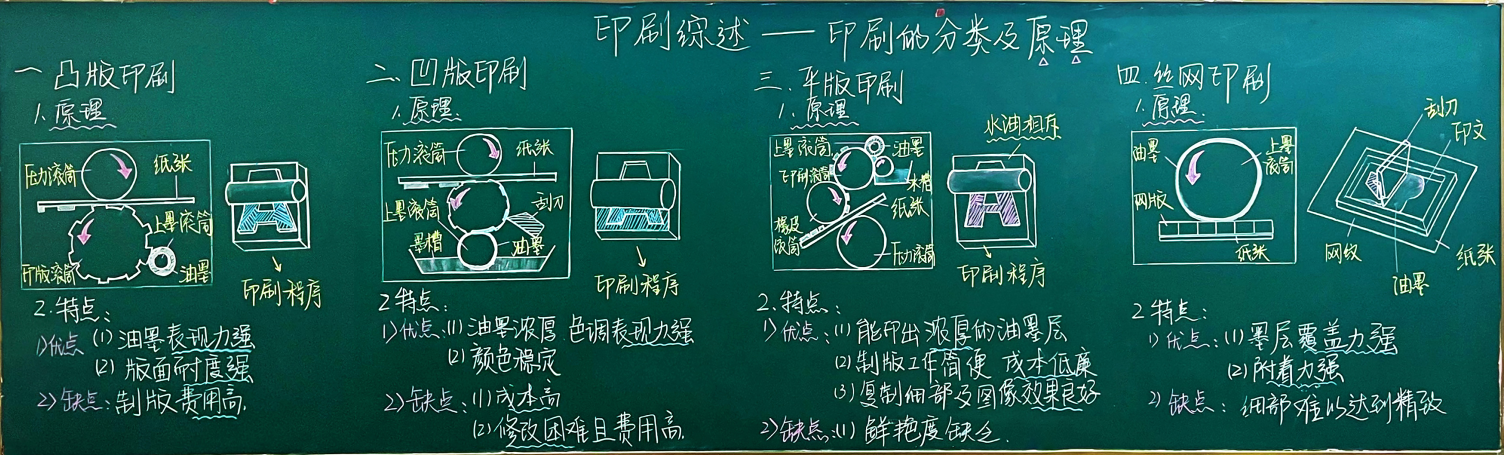 印刷综述——印刷的分类及原理
一 凸版印刷
1.原理
压力滚筒
纸张
上墨滚筒
印版滚筒
油墨
印刷程序
2.特点:
1)优点 (1)油墨表现力强
(2)版面耐度强
2)缺点:制版费用高
二.凹版印刷
1.原理
压力滚筒
纸张
上墨滚筒
刮刀
墨槽
油墨
印刷程序
2特点:
1)优点:(1)油墨浓厚 色调表现力强
(2)颜色稳定
2)缺点:(1)成本高
(2)修改困难且费用高
三.平版印刷
1.原理
水油相斥
上墨滚筒
油墨
印刷滚筒
水槽
纸张
橡皮滚筒
压力滚筒
印刷程序
2.特点:
1)优点:(1)能印出浓厚的油墨层
(2)制版工作简便 成本低廉
(3)复制细部及图像效果良好
2)缺点:(1)鲜艳度缺乏
四.丝网印刷
1.原理
油墨
上墨滚筒
网版
纸张
刮刀
印文
网纹
油墨
纸张
2特点:
1)优点:(1)墨层覆盖力强
(2)附着力强
2)缺点:细部难以达到精致